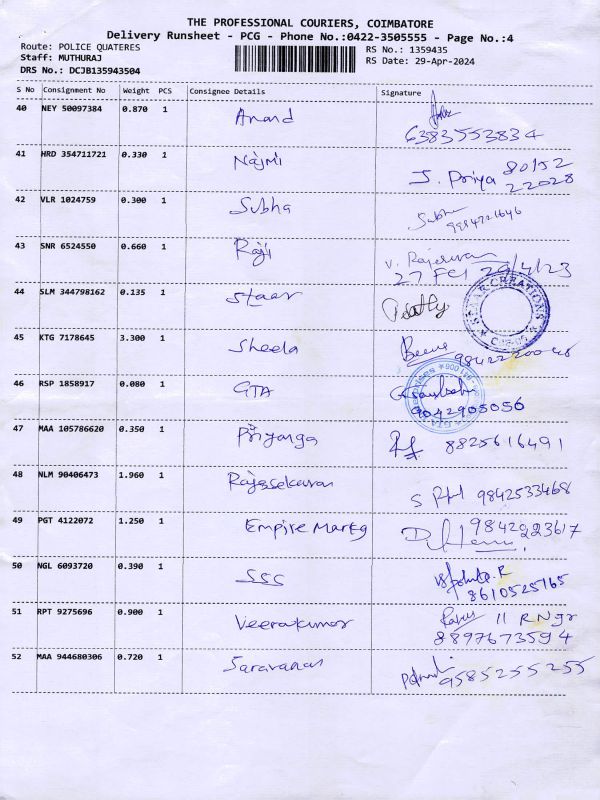 THE PROFESSIONAL COURIERS, COIMBATORE
Delivery Runsheet - PCG - Phone No.:0422-3505555 - Page No.:4
Route: POLICE QUATERES RS No.: 1359435
Staff: MUTHURAJ RS Date: 29-Apr-2024
DRS No.: DCJB135943504
S No Consignment No Weight PCS Consignee Details Signature
40 NEY 50097384 0.870 1 Anand
6383553834
41 HRD 354711721 0.330 1 Najmi J. Priya 80152
22028
42 VLR 1024759 0.300 1 Subha Subha
9994721646
43 SNR 6524550 0.660 1 Raji V. Rajeswari
44 SLM 344798162 0.135 1 Staar
45 KTG 7178645 3.300 1 Sheela 9842220048
46 RSP 1858917 0.080 1 GTA
9042905056
47 MAA 105786620 0.350 1 Priyanga 8825616491
48 NLM 90406473 1.960 1 Rajasekaran 9842533468
49 PGT 4122072 1.250 1 Empire Marktg 9842223617
50 NGL 6093720 0.390 1 SSC
8610525165
51 RPT 9275696 0.900 1 Veerakumar 11 R Ngr
8897673594
52 MAA 944680306 0.720 1 Saravanan 9585255255